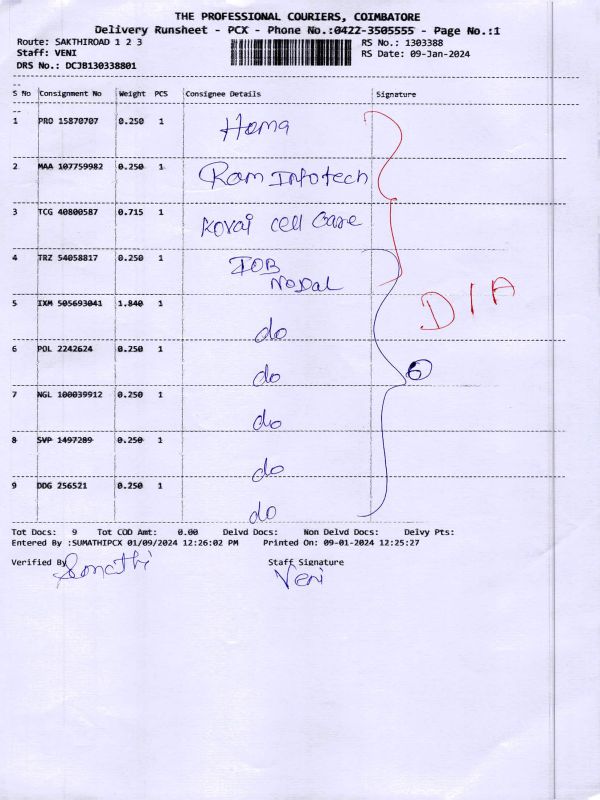 THE PROFESSIONAL COURIERS, COIMBATORE
Delivery Runsheet - PCX - Phone No.:0422-3505555 - Page No.:1
Route: SAKTHIROAD 1 2 3 RS No.: 1303388
Staff: VENI RS Date: 09-Jan-2024
DRS No.: DCJB130338801
S No Consignment No Weight PCS Consignee Details Signature
1 PRO 15870707 0.250 1 Hema
2 MAA 107759982 0.250 1 Ram Infotech
3 TCG 40800587 0.715 1 Kovai Cell Care
4 TRZ 54058817 0.250 1 IOB
Nodal
D/A
5 IXM 505693041 1.840 1 do
6 POL 2242624 0.250 1 do 6
7 NGL 100039912 0.250 1 do
8 SVP 1497289 0.250 1 do
9 DDG 256521 0.250 1 do
Tot Docs: 9 Tot COD Amt: 0.00 Delvd Docs: Non Delvd Docs: Delvy Pts:
Entered By :SUMATHIPCX 01/09/2024 12:26:02 PM Printed On: 09-01-2024 12:25:27
Verified By Staff Signature
Sumathi Veni